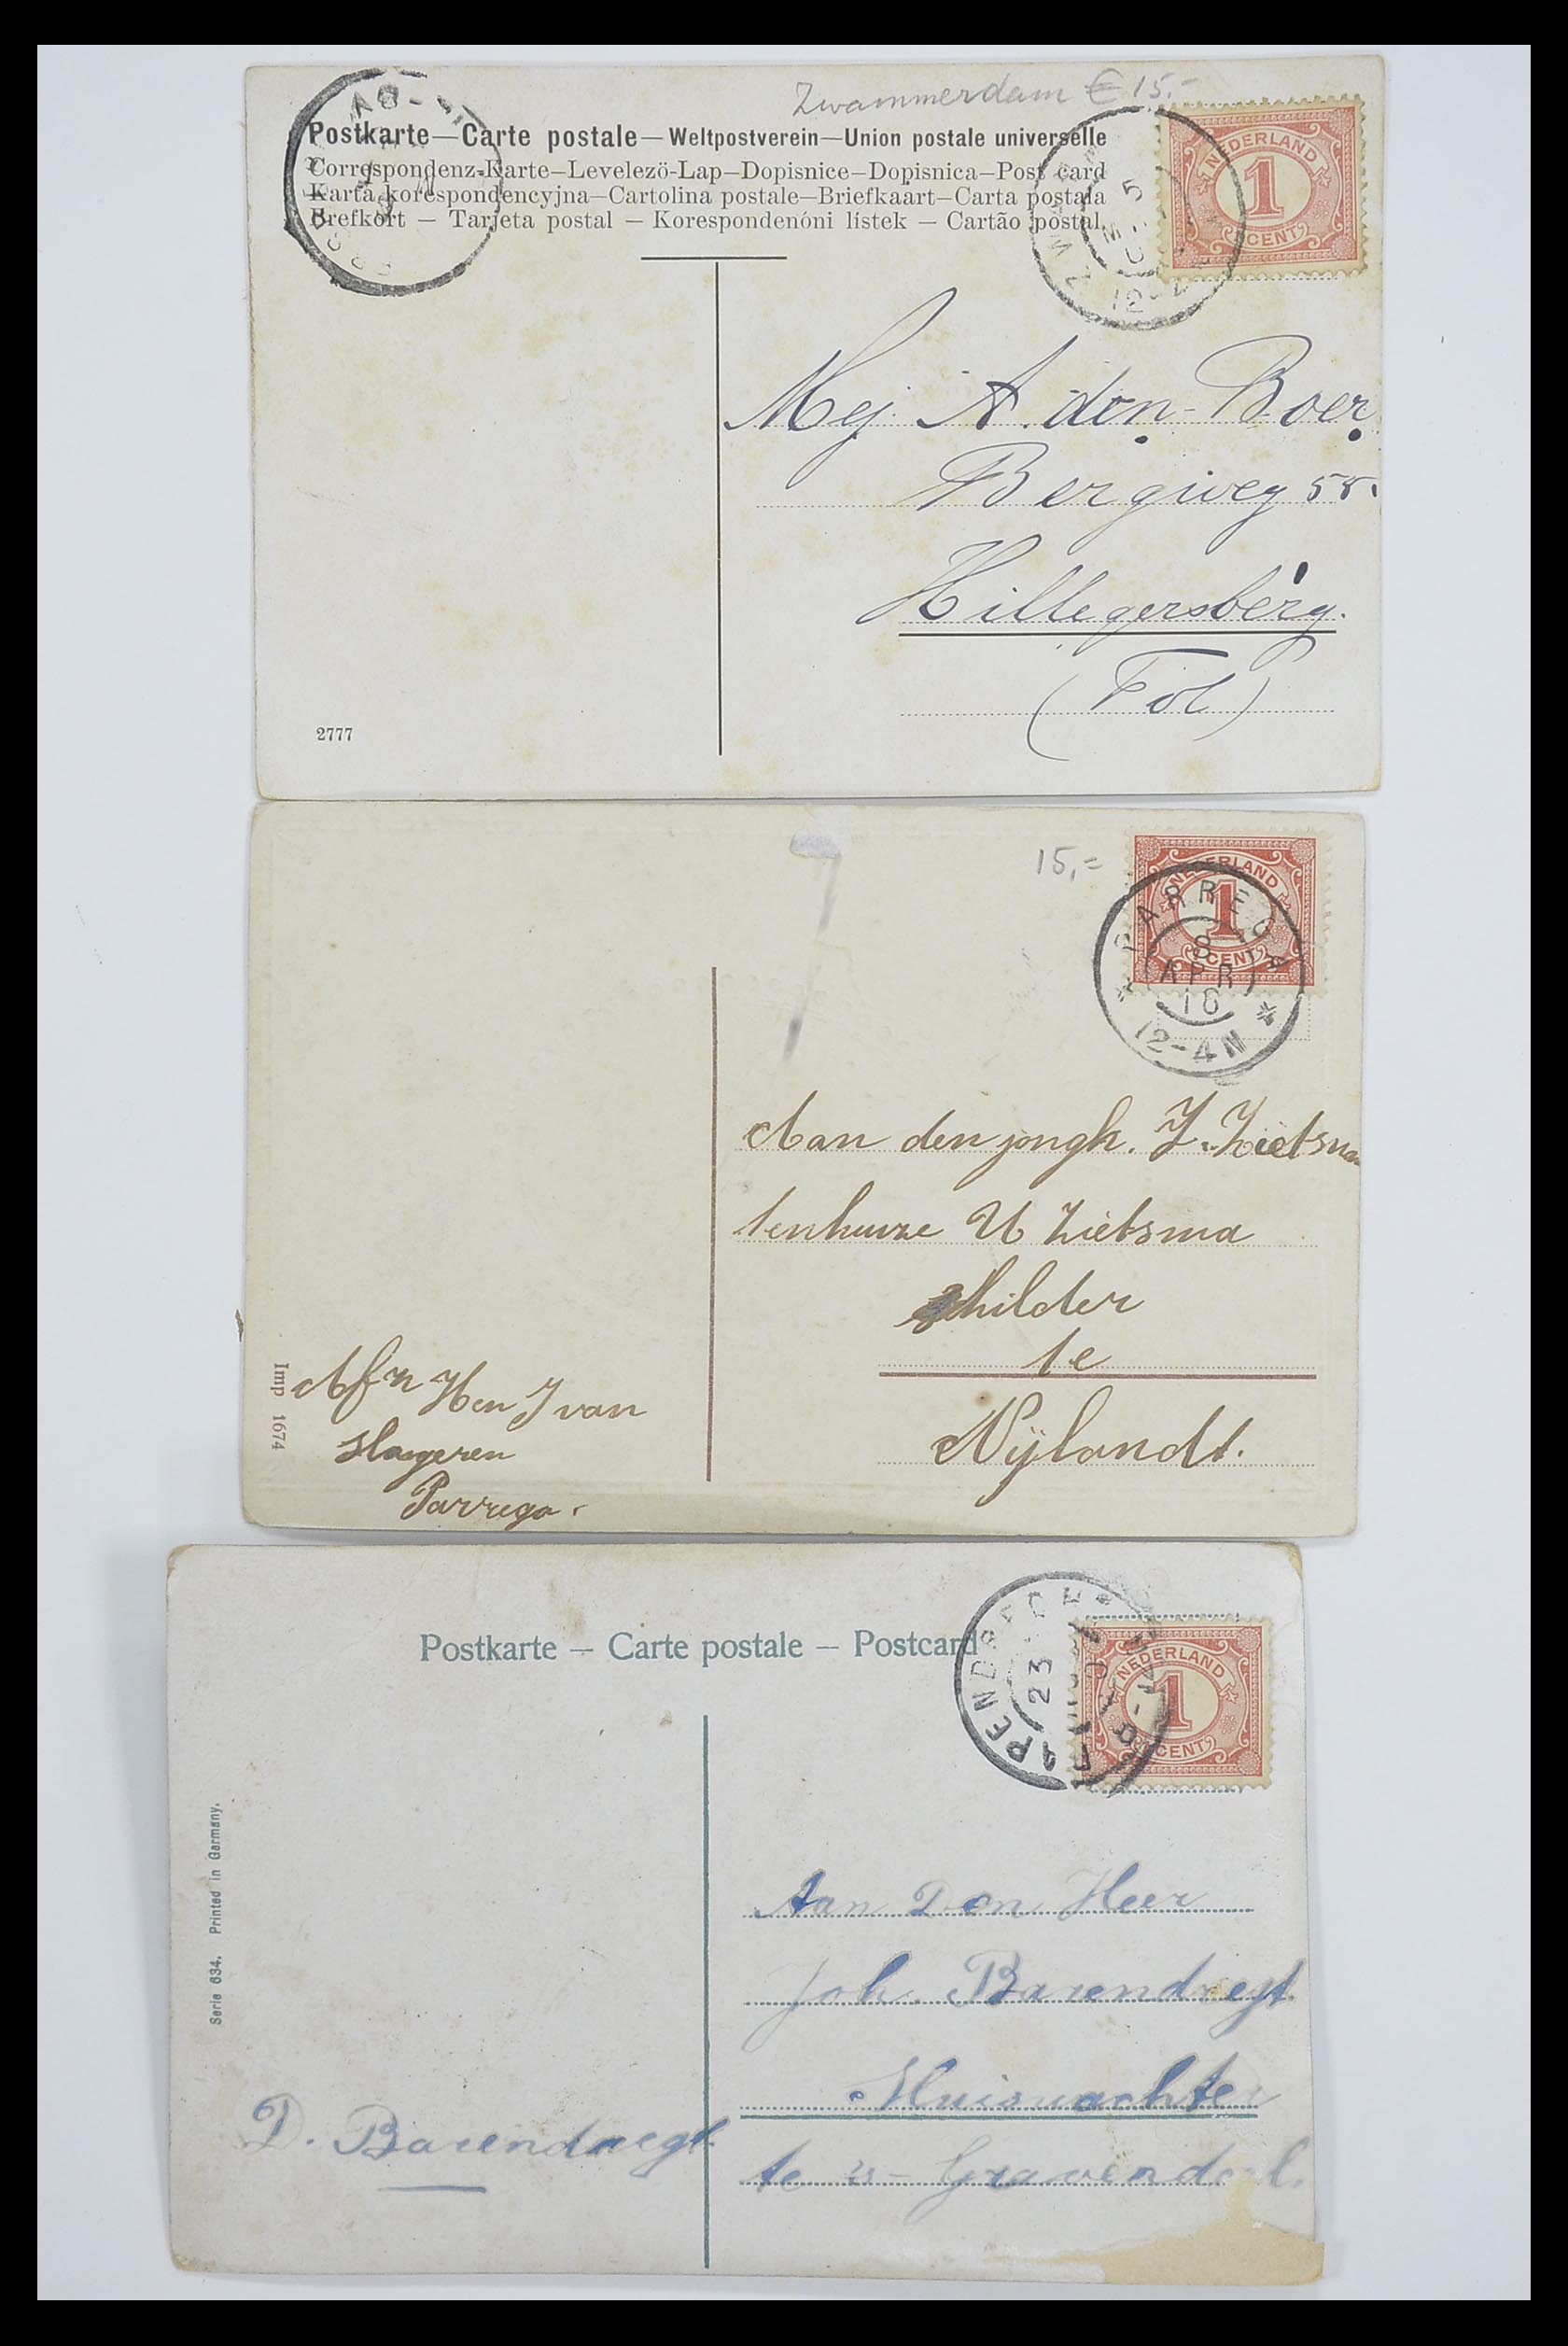 Zwammerdam € 15.-
Postkarte—Carte postale—Weltpostverein—Union postale universelle
Correspondenz-Karte—Levelezö-Lap—Dopisnice—Dopisnica—Post card
Karta korespondencyjna—Cartolina postale—Briefkaart—Carta postala
Brefkort — Tarjeta postal — Korespondenóni lístek — Cartão postal
NEDERLAND
1
CENT
Mej A. den Boer
Bergweg 58.
Hillegersberg.
(Tol)
2777
15,=
NEDERLAND
1
CENT
PARREGA
8
APR
12-4N
Aan den jongh. J. Zietsma
tenhuize U Zietsma
schilder
te
Nÿlandt.
Imp 1674
Afzn Hen J van
Slageren
Parrega.
Postkarte — Carte postale — Postcard
PENDRECHT
23
NEDERLAND
1
CENT
Serie 634. Printed in Germany.
Aan Den Heer
Joh. Barendregt
Huiswachter
te s- Gravendeel.
D. Barendregt